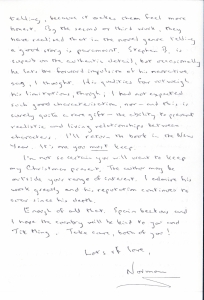 telling, because it makes them feel more
honest. By the second or third week, they
have realised that in the novel genre, telling
a good story is paramount. Stephen B. is
superb on the authentic detail, but occasionally
he lost the forward impulsion of his narrative,
I thought. His qualities far outweigh
his limitations, though, I had not expected
such good characterisation, nor – and this is
surely quite a rare gift – the ability to present
realistic and living relationships between
characters. I'll return the book in the New
Year. It's one you must keep.
I'm not so certain you will want to keep
my Christmas present. The author may be
outside your range of interest. I admire his
work greatly and his reputation continues to
soar since his death.
Enough of all that. Spain beckons and
I hope the country will be kind to you and
Take care, both of you!
Lots of love,
Norman